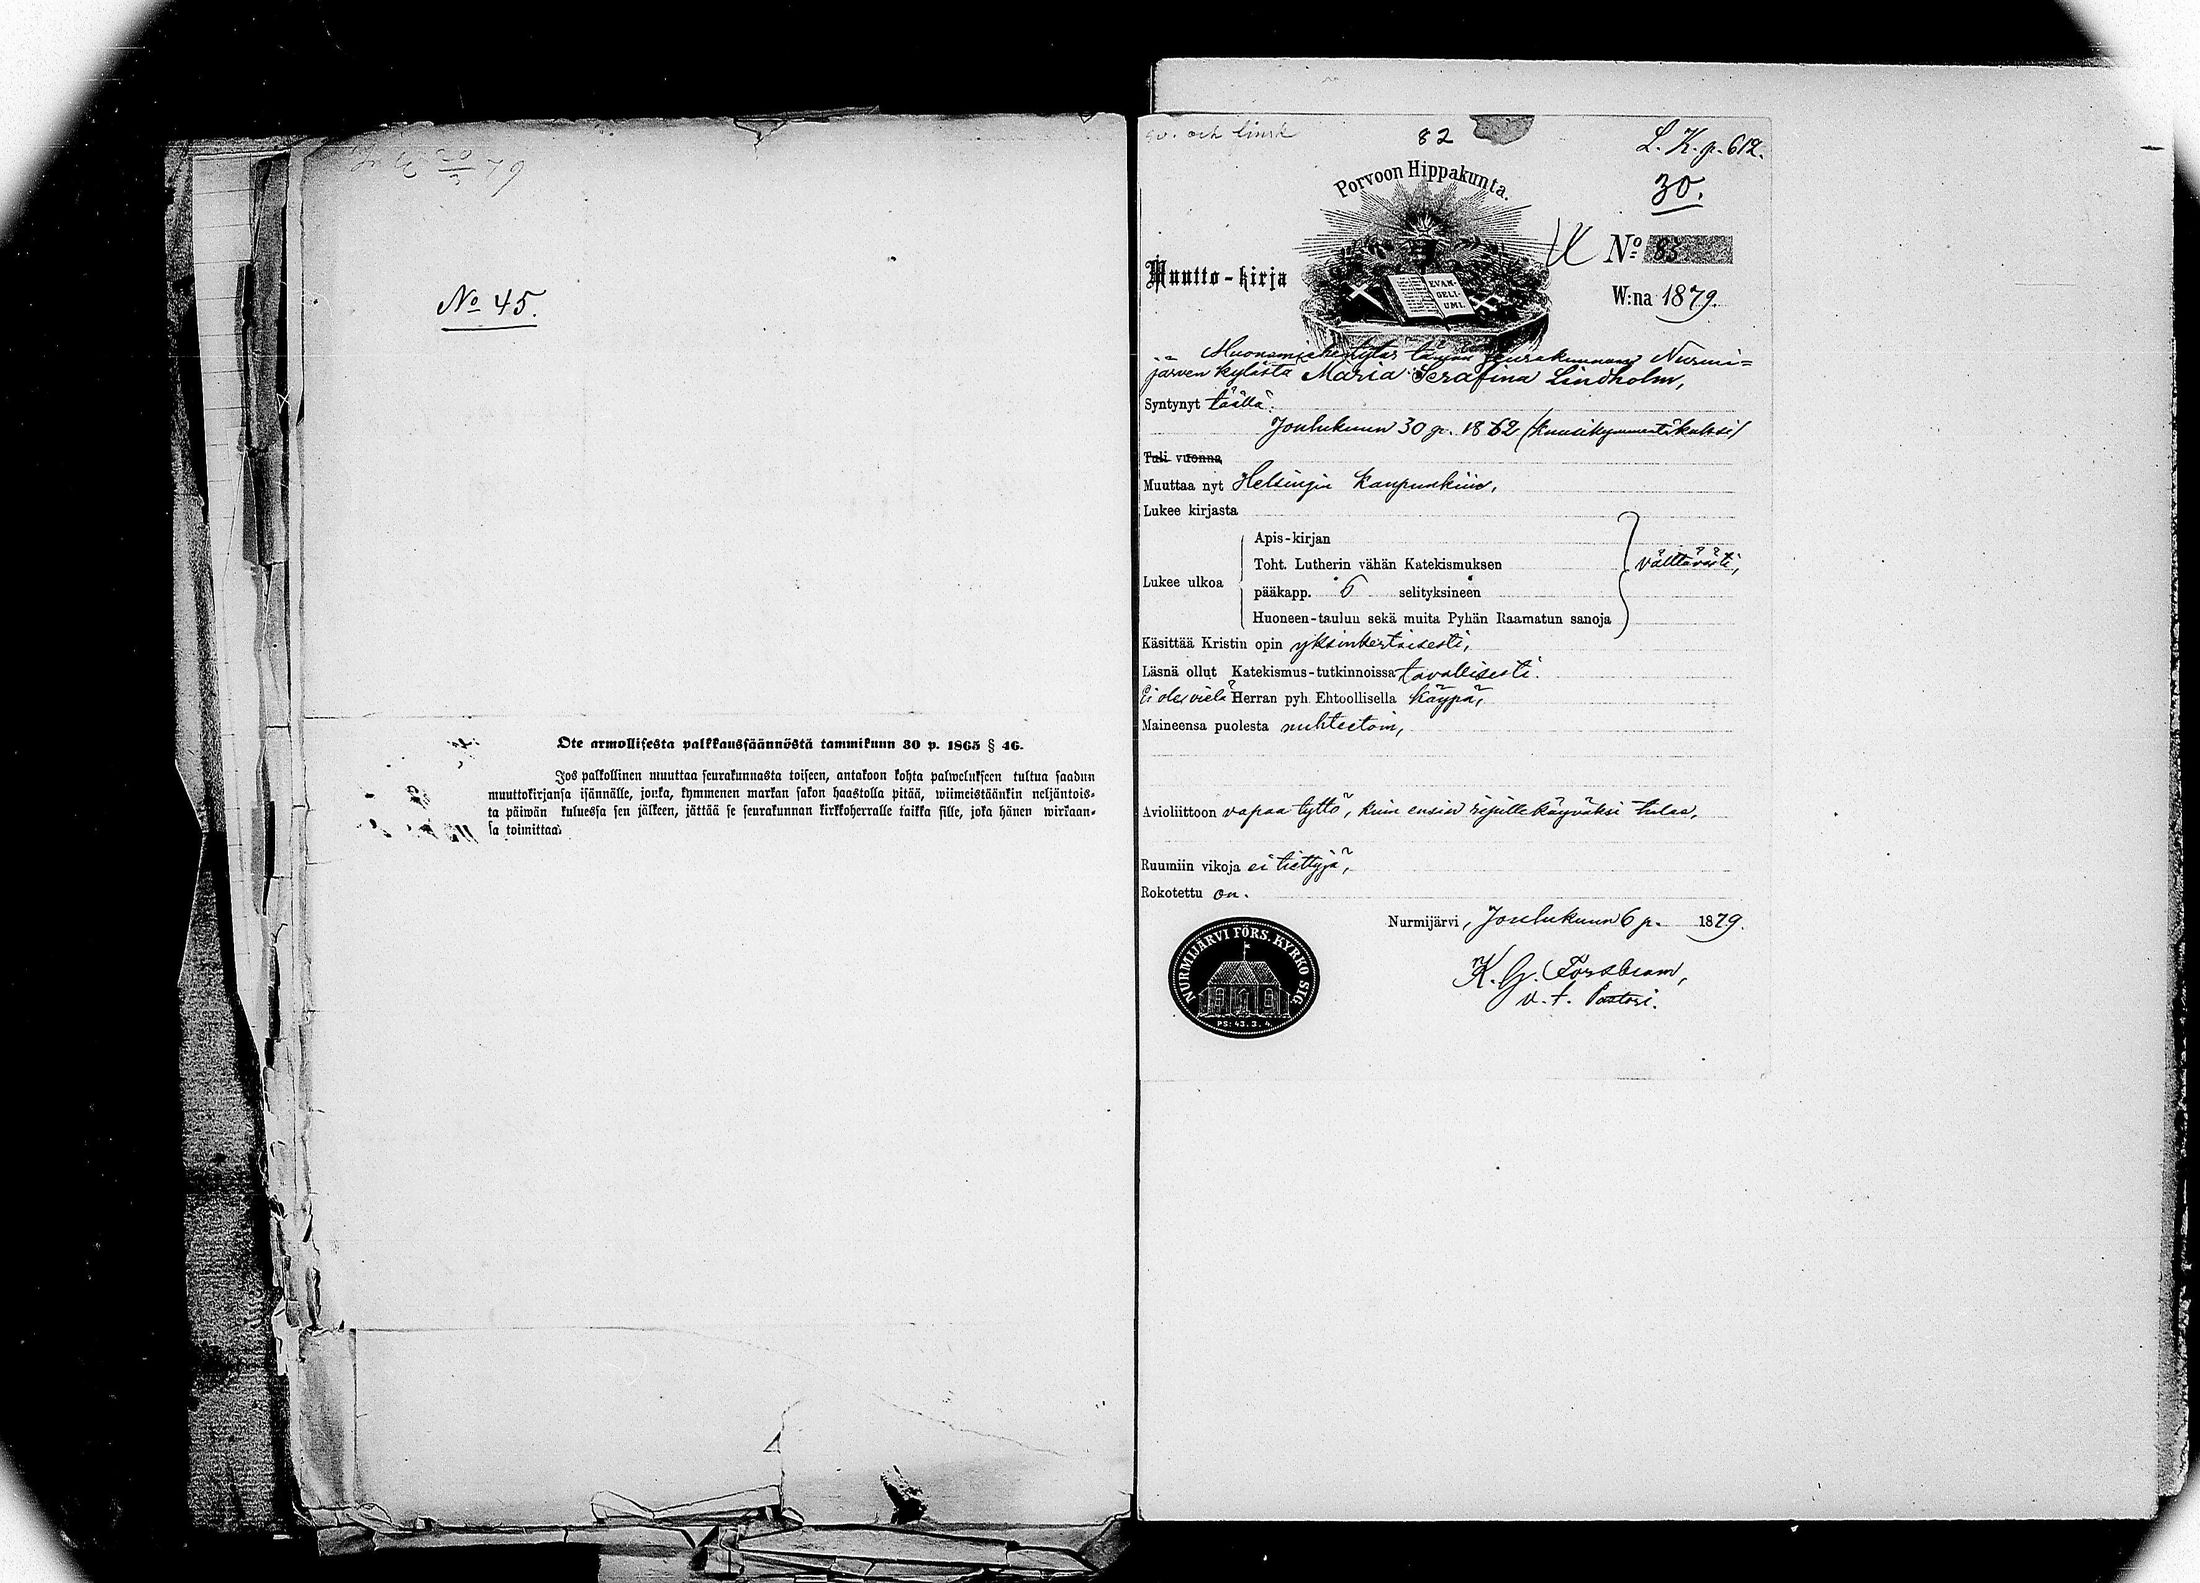 No 45.
Ote armollisesta palkkaussäännöstä tammikuun 30 p. 1865 § 46.
Jos palkollinen muuttaa seurakunnasta toiseen, antakoon kohta palwelukseen tultua saadun
muuttokirjansa isännälle, jonka, kymmenen markan sakon haastolla pitää, wiimeistäänkin neljäntois-
ta päiwän kuluessa sen jälkeen, jättää se seurakunnan kirkkoherralle taikka sille, joka hänen wirkaan-
sa toimittaa.
och
82
L. K. p. 612.
30.
Porvoon Hippakunta.
Muutto-kirja
EVAN-
GELI-
UMI.
No 83
W:na 1879.
tämän seurakunnan Nurmi=
järven kylästä Maria Serafina Lindholm,
Syntynyt täällä.
Joulukuun 30 p. 1862 (kuusikymmentäkaksi)
Tuli vuonna
Muuttaa nyt Helsingin kaupunkiin,
Lukee kirjasta
Apis-kirjan
Toht. Lutherin vähän Katekismuksen
välttävästi,
Lukee ulkoa
pääkapp. 6 selityksineen
Huoneen-taulun sekä muita Pyhän Raamatun sanoja
Käsittää Kristin opin yksinkertaisesti,
Läsnä ollut Katekismus-tutkinnoissa tavallisesti.
Ei ole vielä Herran pyh. Ehtoollisella käypä,
Maineensa puolesta nuhteetoin,
Avioliittoon vapaa tyttö, kuin ensin ripillekäyväksi tulee,
Ruumiin vikoja ei tiettyjä,
Rokotettu on.
Nurmijärvi, Joulukuun 6 p. 1879.
NURMIJÄRVI FÖRS. KYRKO SIG
PS: 43. 3. 4.
K. G. Forsbom,
v. t. Pastori.